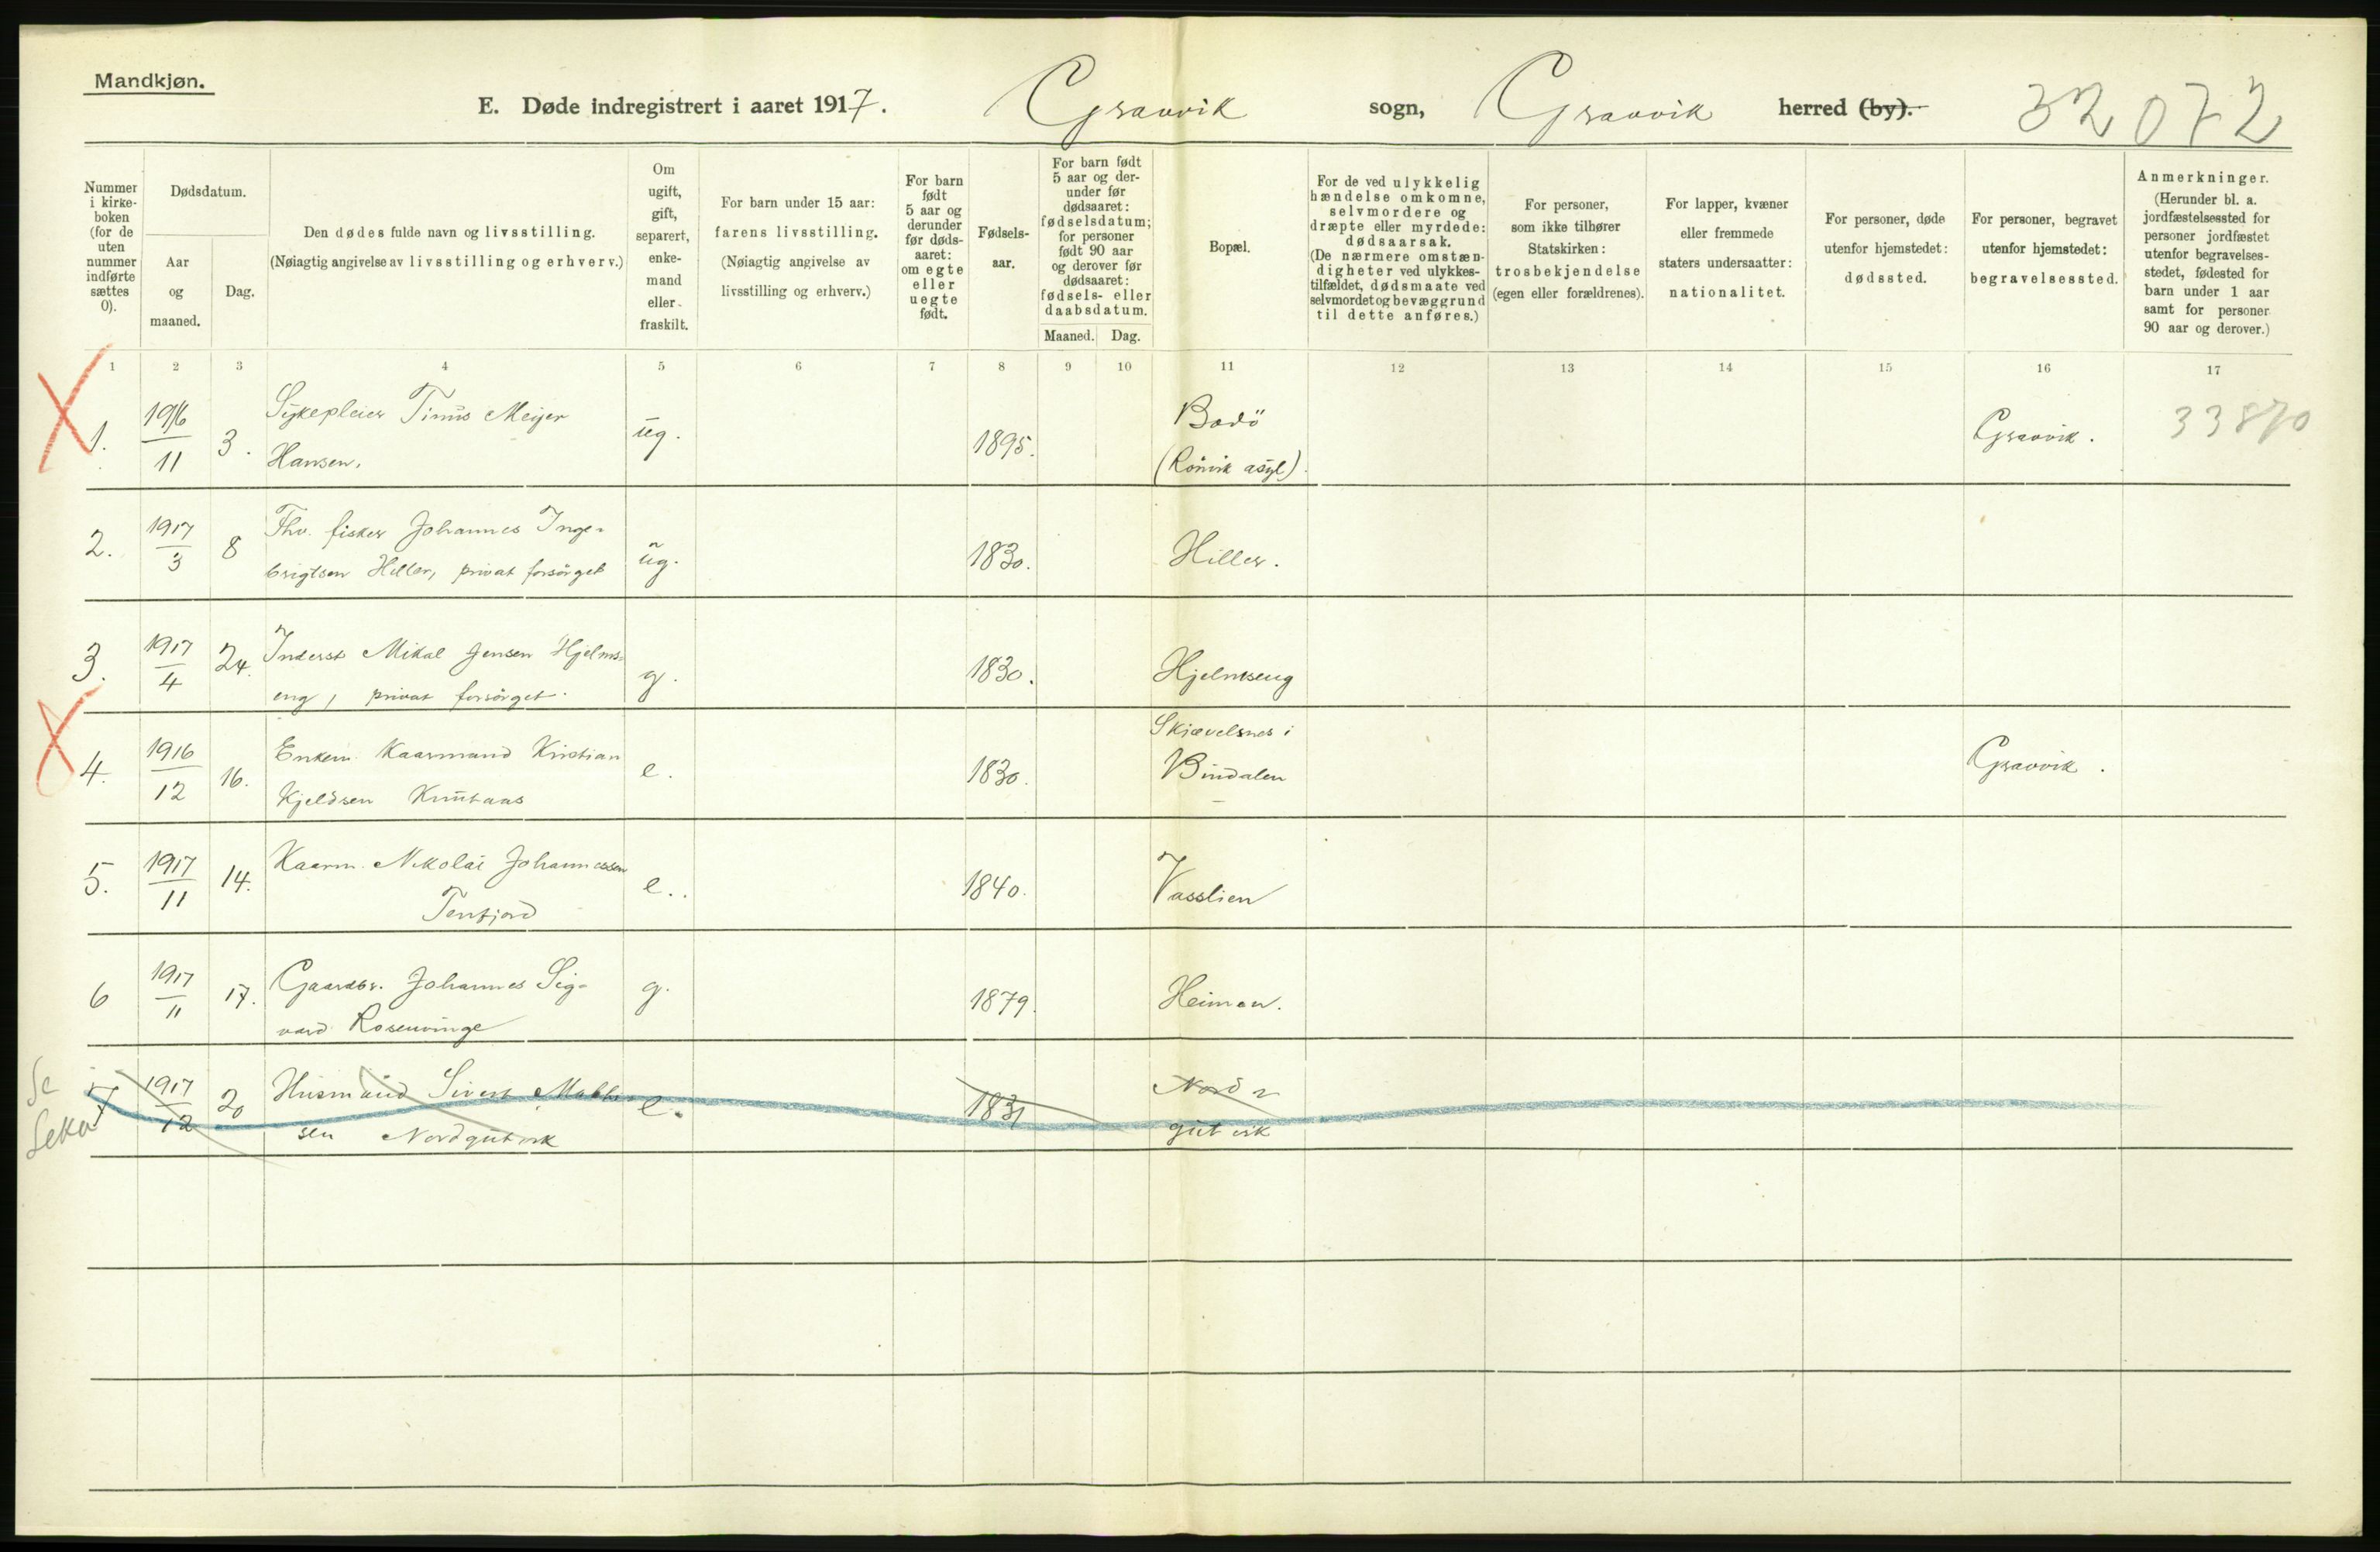 Mandkjøn.
E. Døde indregistrert i aaret 1917. Gravvik sogn, Gravvik herred (by).
32072
Nummer i kirkeboken (for de uten nummer indførte sættes 0).
Dødsdatum.
Aar og maaned.
Dag.
Den dødes fulde navn og livsstilling.
(Nøiagtig angivelse av livsstilling og erhverv.)
Om ugift, gift, separert, enkemand eller fraskilt.
For barn under 15 aar:
farens livsstilling.
(Nøiagtig angivelse av livsstilling og erhverv.)
For barn født 5 aar og derunder før dødsaaret: om egte eller uegte født.
Fødselsaar.
For barn født 5 aar og derunder før dødsaaret: fødselsdatum; for personer født 90 aar og derover før dødsaaret: fødsels- eller daabsdatum.
Maaned. Dag.
Bopæl.
For de ved ulykkelig hændelse omkomne, selvmordere og dræpte eller myrdede: dødsaarsak.
(De nærmere omstændigheter ved ulykkestilfældet, dødsmaate ved selvmordet og bevæggrund til dette anføres.)
For personer, som ikke tilhører Statskirken: trosbekjendelse (egen eller forældrenes).
For lapper, kvæner eller fremmede staters undersaatter: nationalitet.
For personer, døde utenfor hjemstedet: dødssted.
For personer, begravet utenfor hjemstedet: begravelsessted.
Anmerkninger.
(Herunder bl. a. jordfæstelsessted for personer jordfæstet utenfor begravelsesstedet, fødested for barn under 1 aar samt for personer 90 aar og derover.)
1 2 3 4 5 6 7 8 9 10 11 12 13 14 15 16 17
1. 1916/11 3. Sykepleier Tinus Meijer
Hansen. ug. 1895. Bodö
(Rönvik asyl). Gravvik. 33870
2. 1917/3 8 Fhv. fisker Johannes Inge-
brigtsen Hiller, privat forsörget ug. 1830. Hiller.
3. 1917/4 24. Inderst Mikal Jensen Hjelms-
eng, privat forsörget. g. 1830. Hjelmseng
4. 1916/12 16. Enkem. Kaarmand Kristian
Kjeldsen Knutaas e. 1830. Skjævelsnes i
Bindalen Gravvik.
5. 1917/11 14. Kaarm. Nikolai Johannessen
Terfjord e. 1840. Vasslien
6 1917/11 17. Gaardbr. Johannes Sig-
vard Rosenvinge g. 1879. Heimen.
Se
7 1917/12 20 Husmand Sivert Math
sen Nordgutvik e. 1831 Nord-
gutvik